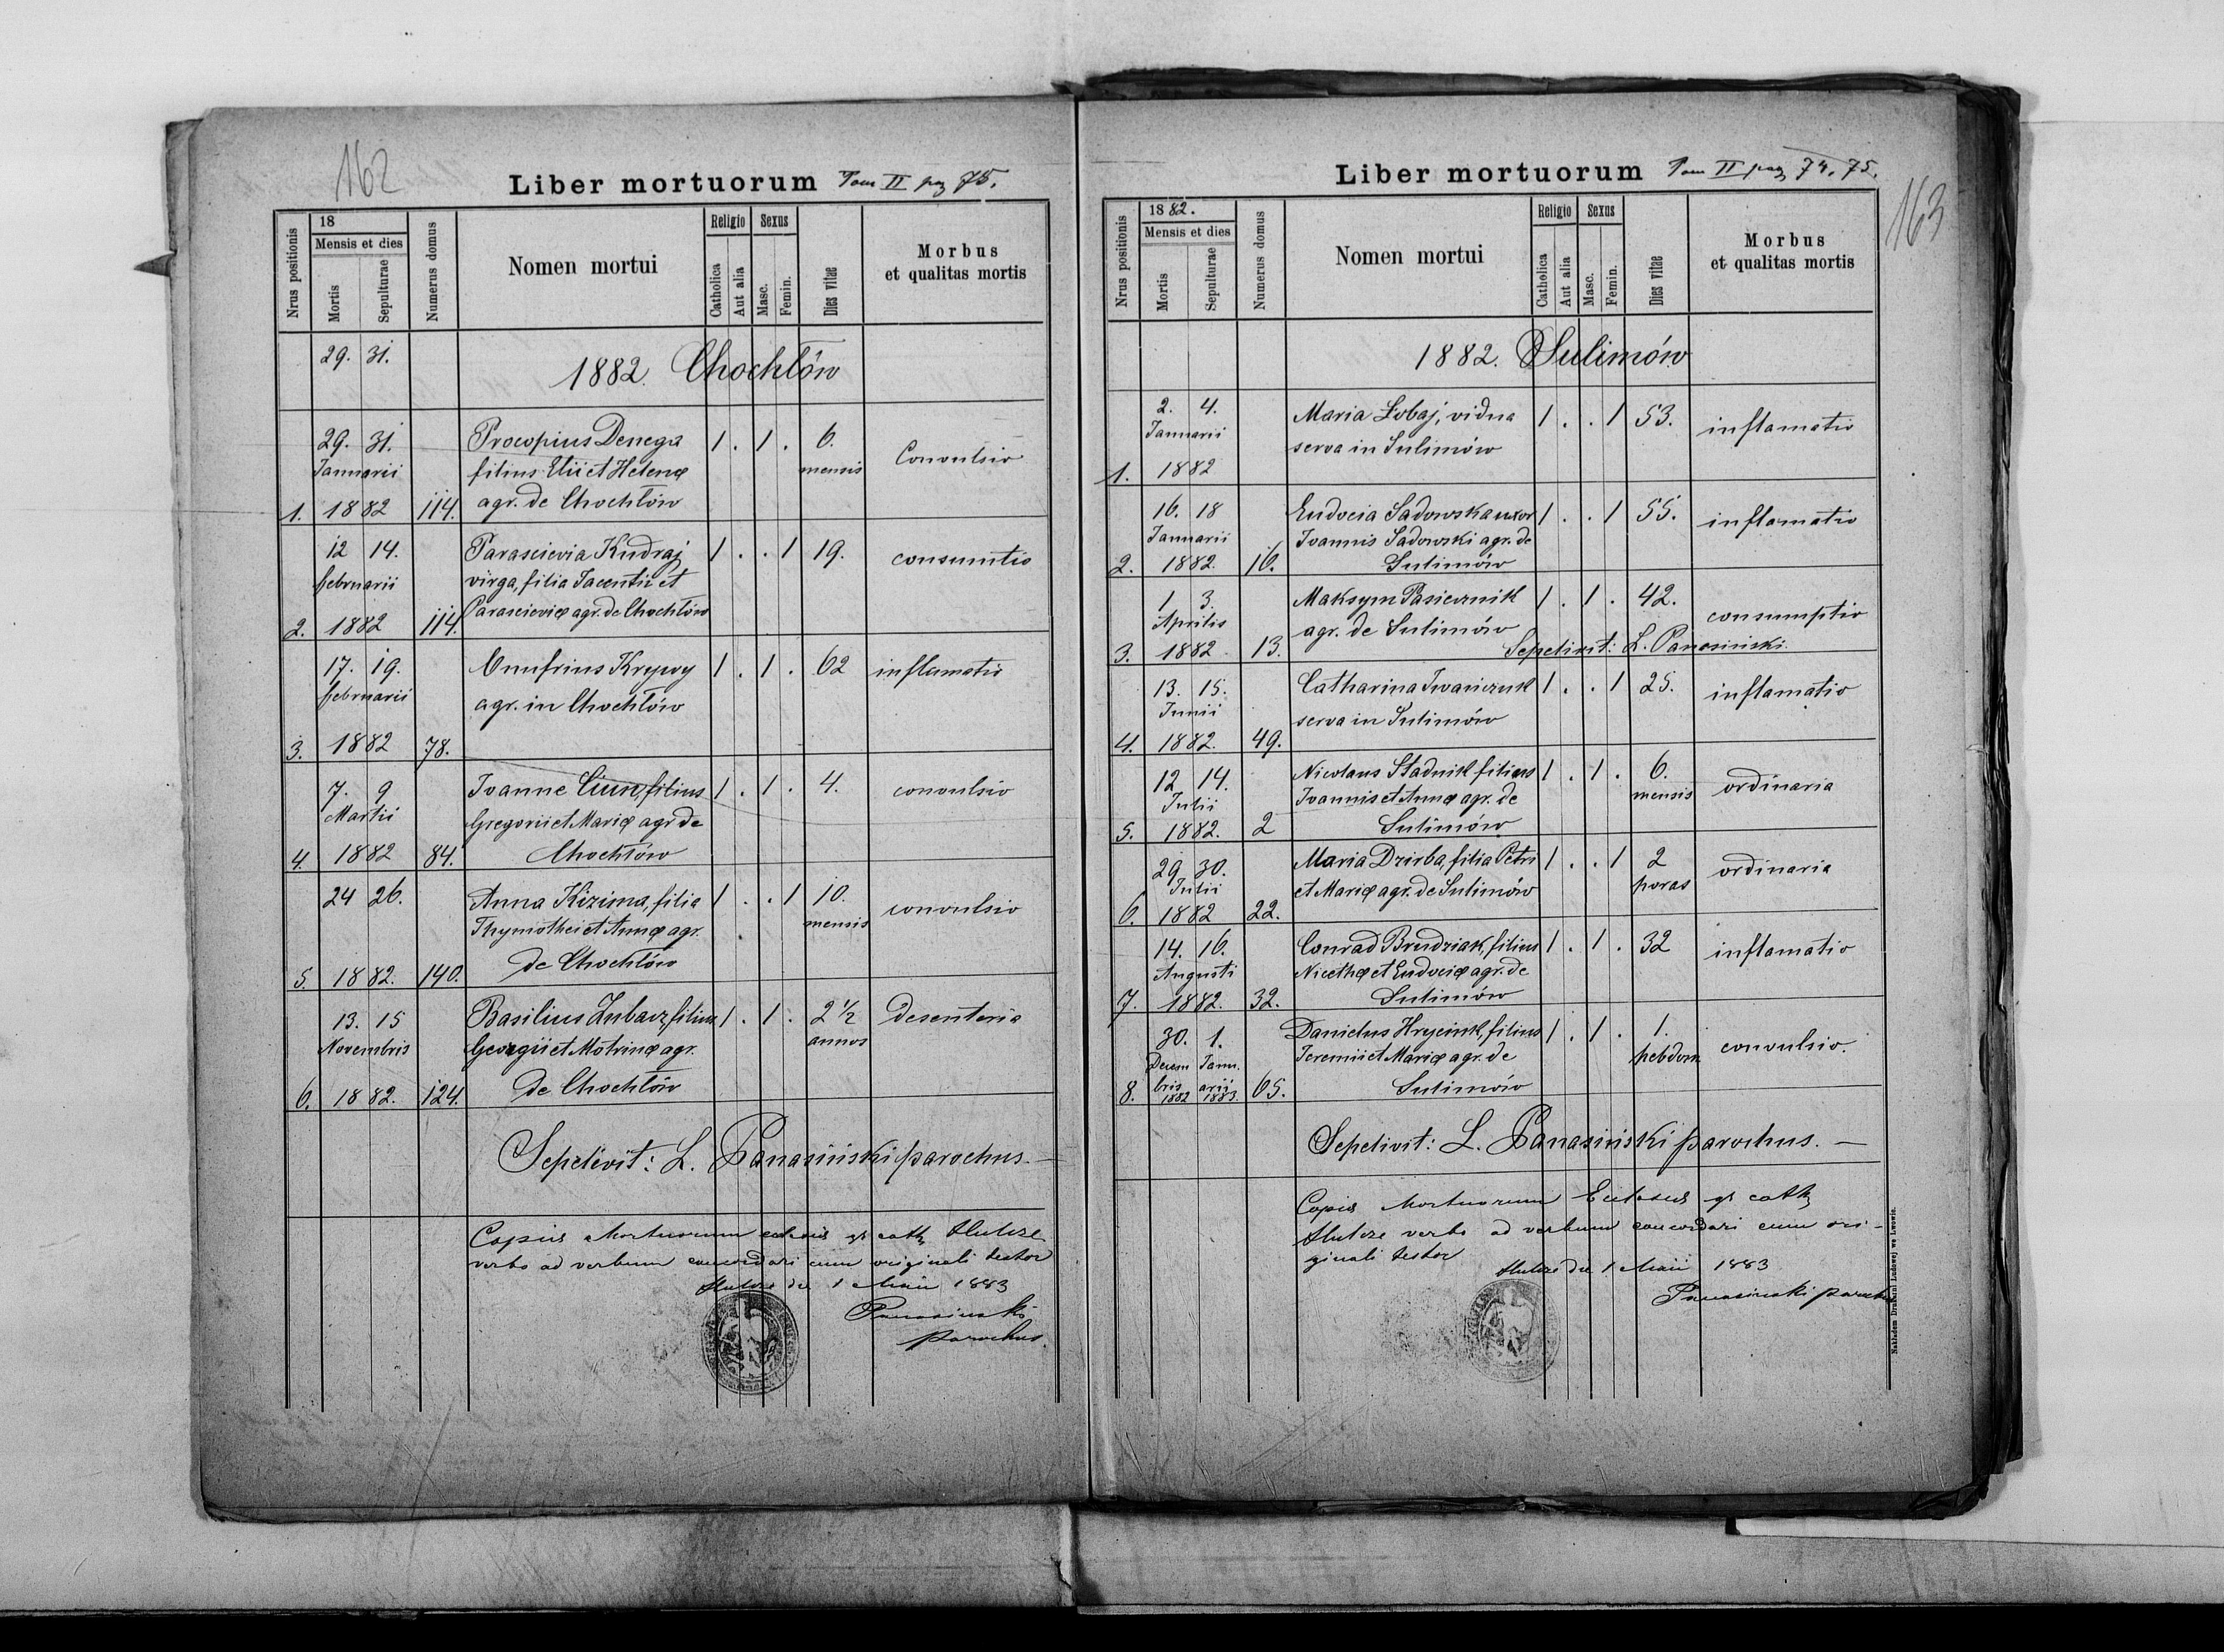 162
Liber mortuorum Tom II pag 75.
Nrus positionis
18
Mensis et dies
Mortis
Sepulturae
Numerus domus
Nomen mortui
Religio
Catholica
Aut alia
Sexus
Masc.
Femin.
Dies vitae
Morbus
et qualitas mortis
29. 31.
1882. Chochłów
29. 31. Procopius Denega 1 . 1 . 6.
Januarii filius Elii et Helenæ mensis Convulsio
1. 1882 114. agr. de Chochłów
12 14. Parascievia Kudraj 1 . . 1 19. consumtio
februarii virga, filia Jacentii et
2. 1882 114. Parascieviæ agr. de Chochłów
17. 19. Onufrius Krywy 1 . 1 . 62 inflamatio
februarii agr. in Chochłów
3. 1882 78.
7. 9 Joanne filius 1 . 1 . 4. convulsio
Martii Gregorii et Mariæ agr de
4. 1882 84. Chochłów
24 26. Anna Kizima, filia 1 . . 1 10. convulsio
Thymothei et Annæ agr. . mensis
5. 1882. 140. de Chochłów
13. 15 Basilius Zubacz, filius 1 . 1 . 2 1/2 desenteria
Novembris Georgii et Motrinæ agr. annos
6. 1882. 124. de Chochłów
Sepelivit: L. Panasiński parochus. —
Copia Mortuorum eclesiæ gr cath
verbo ad verbum concordari cum originali testor
die 1 Maii 1883
Panasiński
parochus.
163
Liber mortuorum Tom II pag 74. 75.
Nrus positionis
1882.
Mensis et dies
Mortis
Sepulturae
Numerus domus
Nomen mortui
Religio
Catholica
Aut alia
Sexus
Masc.
Femin.
Dies vitae
Morbus
et qualitas mortis
1882. Sulimów
2. 4. Maria Łobaj, vidua 1 . . 1 53. inflamatio
Januarii serva in Sulimów
1. 1882
16. 18 Eudocia Sadowska uxor 1 . . 1 55. inflamatio
Januarii Joannis Sadowski agr. de
2. 1882. 16. Sulimów
1 3. Maksym Pasicznik 1 . 1 . 42. consumptio
Aprilis agr. de Sulimów
3. 1882 13. Sepelivit: L. Panasiński.
13. 15. Catharina Iwańczuk 1 . . 1 25. inflamatio
Junii serva in Sulimów
4. 1882. 49.
12 14. Nicolaus Stadnik filius 1 . 1 . 6. ordinaria
Julii Joannis et Annæ agr. de mensis
5. 1882. 2 Sulimów
29 30. Maria Dzirba, filia Petri 1 . . 1 2 ordinaria
Julii et Mariæ agr. de Sulimów horas
6. 1882 22.
14. 16. Conrad Brudziak, filius 1 . 1 . 32 inflamatio
Augusti Nicethæ et Eudociæ agr. de
7. 1882. 32. Sulimów
30. 1. Danielus Hryciuk, filius 1 . 1 . 1. convulsio.
Decem Janu. Jeremii et Mariæ agr. de hebdom
bris arii
8. 1882 1883. 65. Sulimów
Sepelivit: L. Panasiński parochus. —
Copia Mortuorum Eclesiæ gr cath
verbo ad verbum concordari cum ori-
ginali testor
die 1 Maii 1883
Panasiński parochus
Nakładem Drukarni Ludowej we Lwowie.